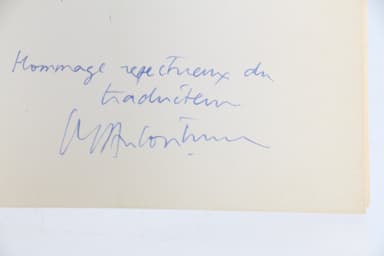 Hommage respectueux du
traducteur